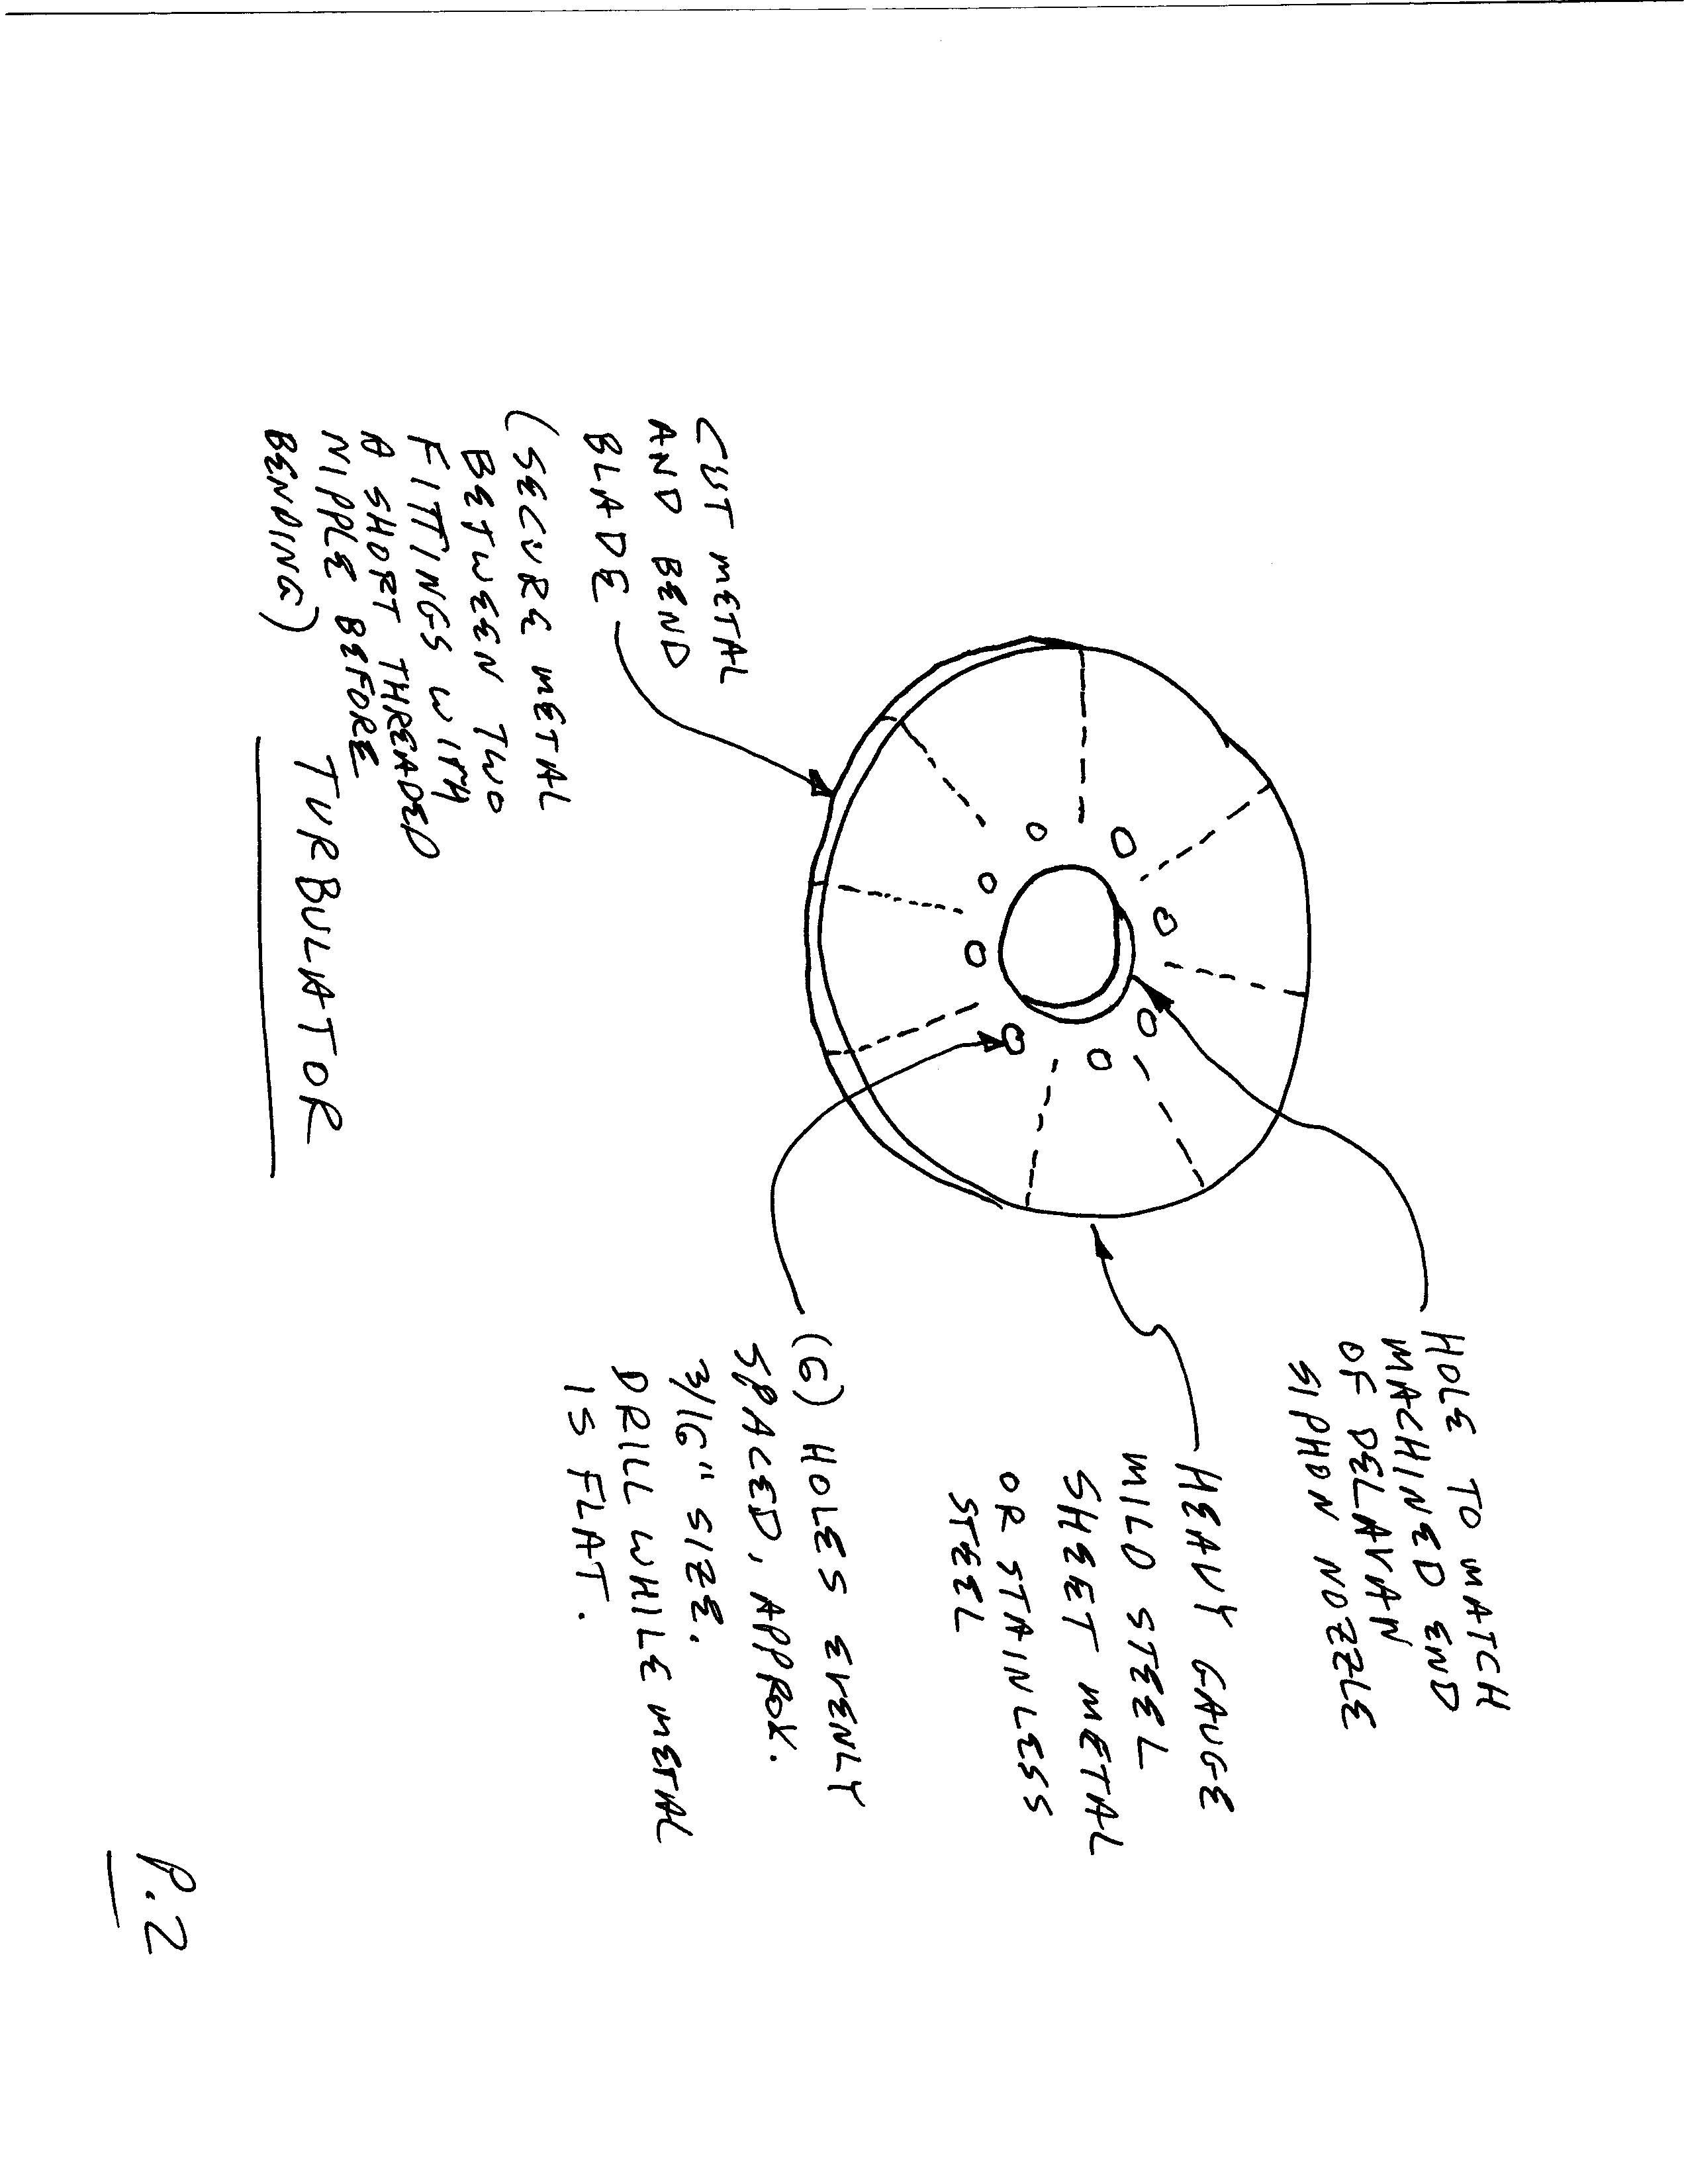 HOLE TO MATCH
MACHINED END
OF DELAVAN
SIPHON NOZZLE
HEAVY GAUGE
MILD STEEL
SHEET METAL
OR STAINLESS
STEEL
(6) HOLES EVENLY
SPACED, APPROX.
3/16" SIZE.
DRILL WHILE METAL
IS FLAT.
CUT METAL
AND BEND
BLADE
(SECURE METAL
BETWEEN TWO
FITTINGS WITH
A SHORT THREADED
NIPPLE BEFORE
BENDING)
TURBULATOR
P.2